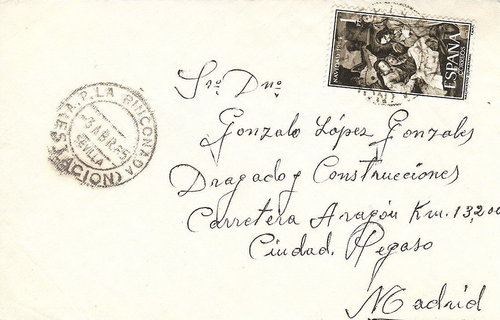 1
ESPAÑA
A.P. LA RINCONADA (ESTACION)
ABR
SEVILLA
Sr. Dn.
Gonzalo López Gonzales
Dragado y Construcciones
Carretera Aragón Km. 13,200
Ciudad Pegaso
Madrid